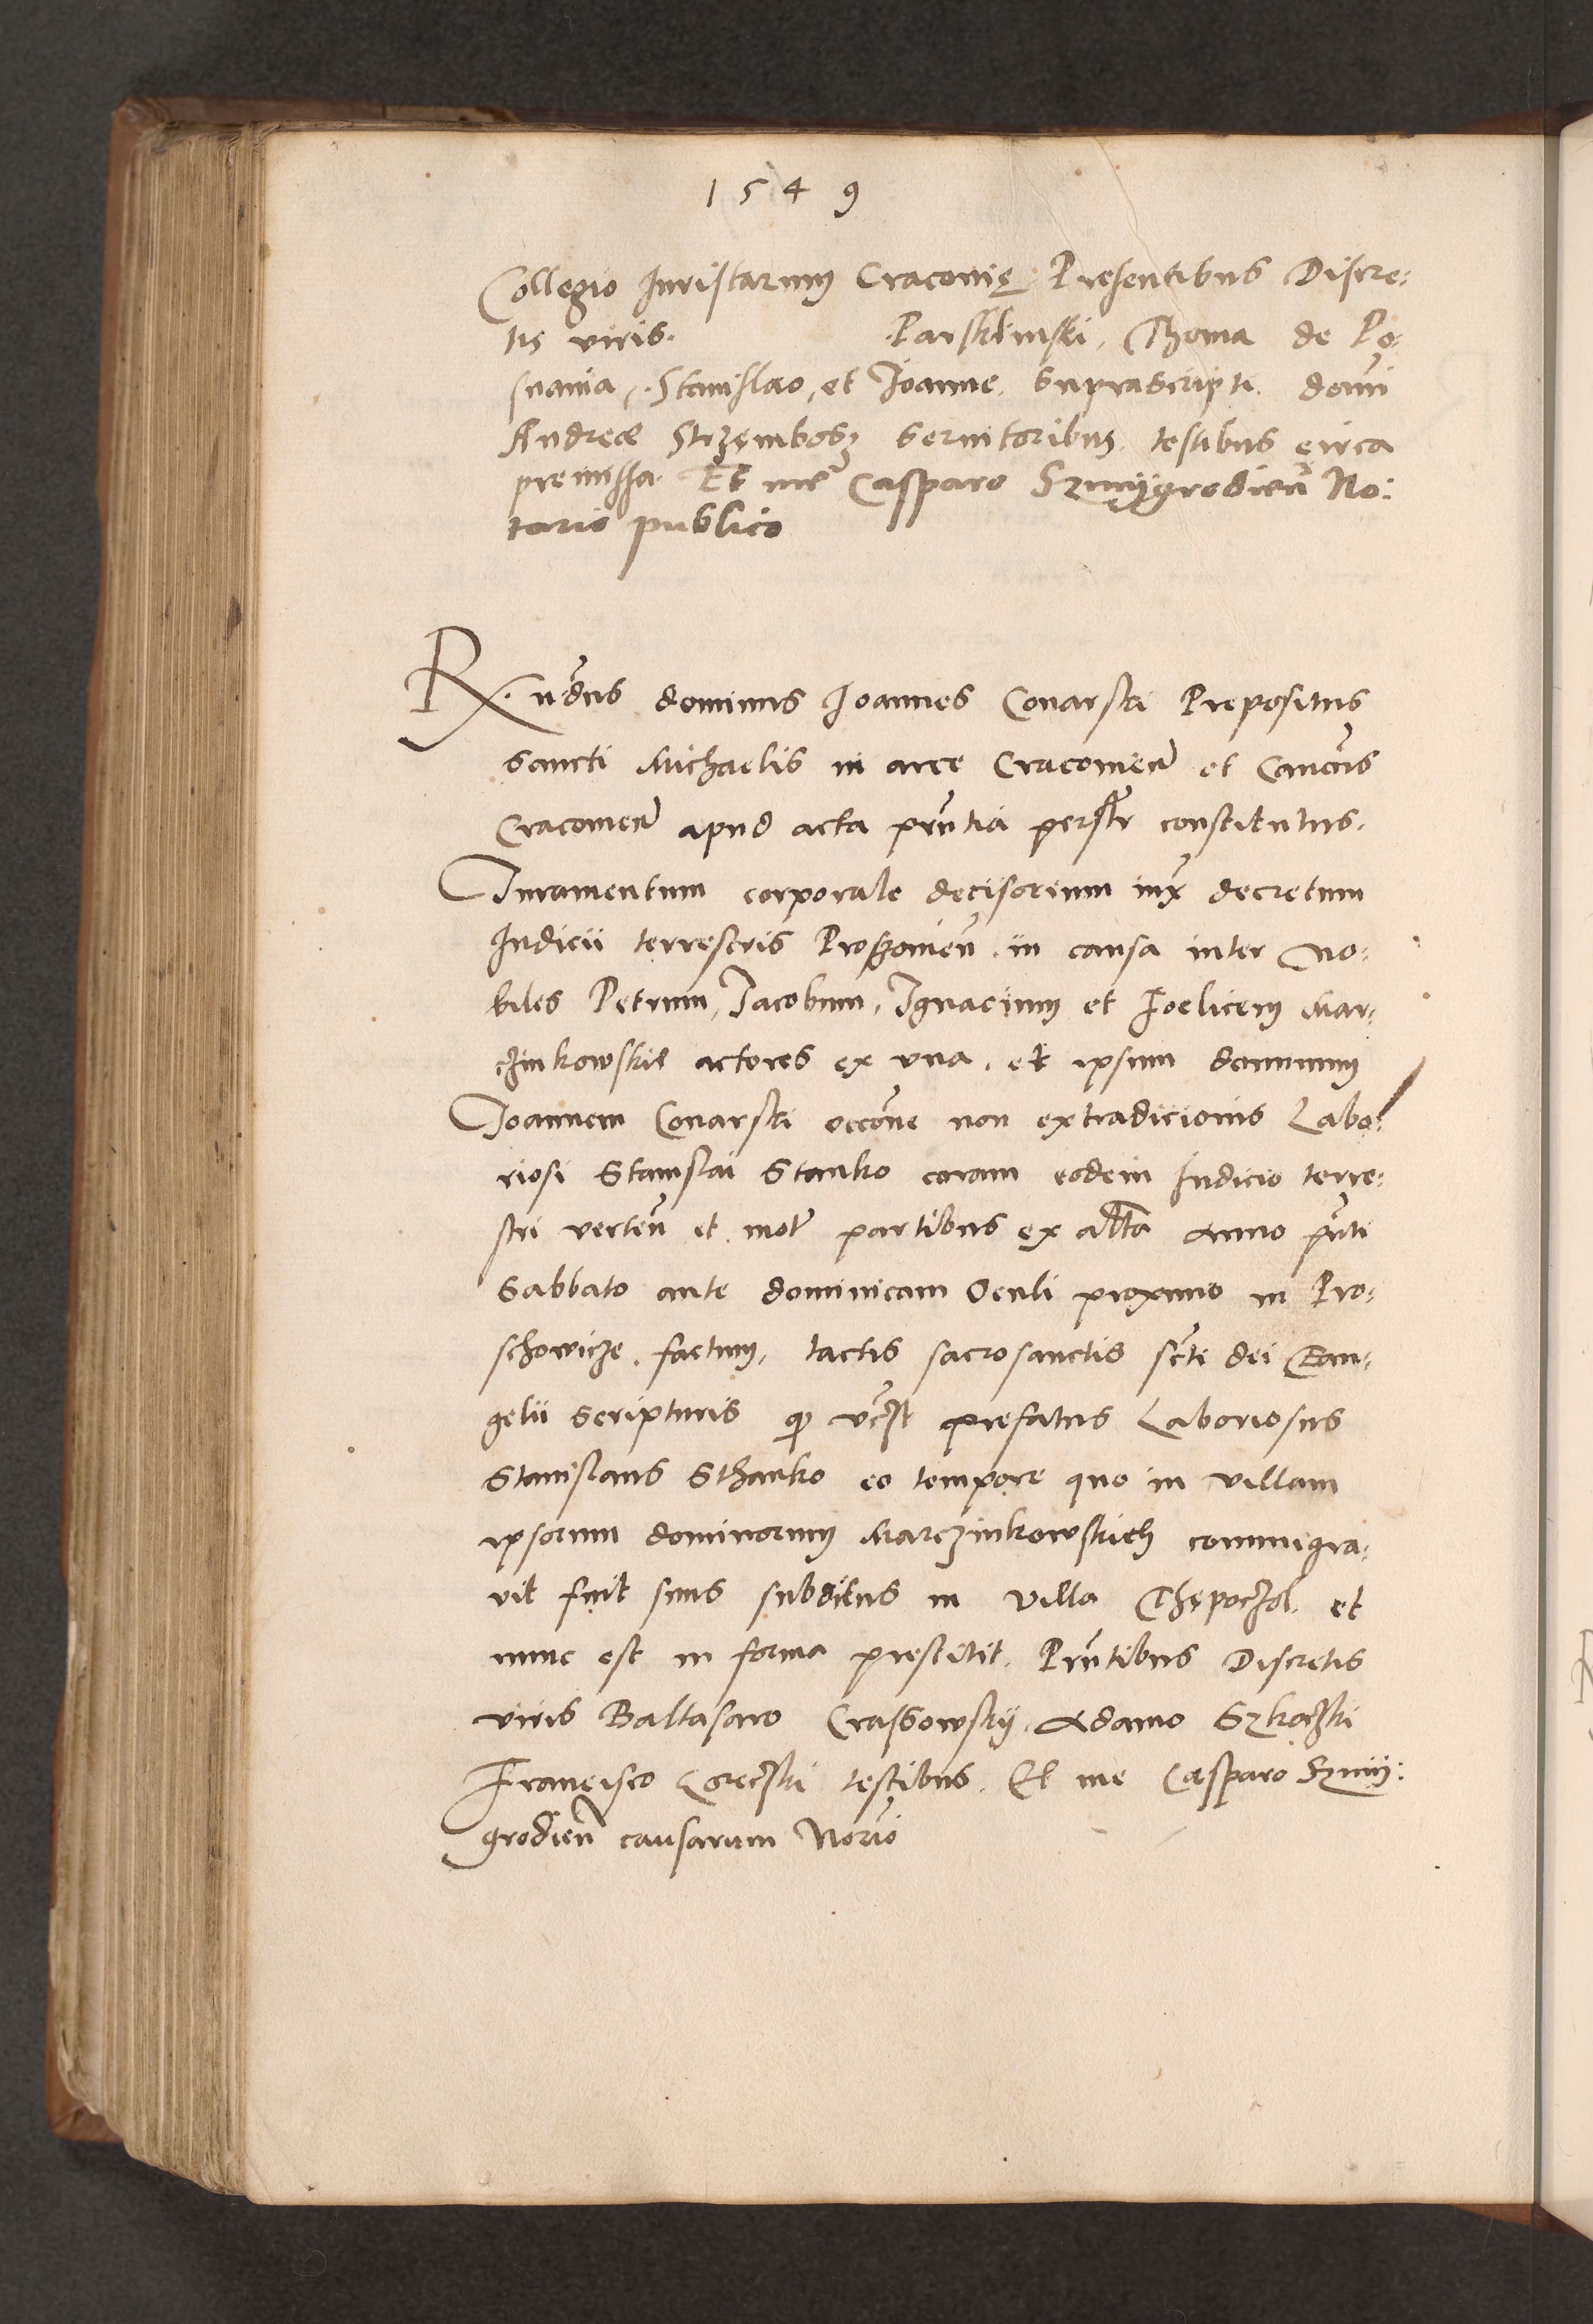 1549
Collegio Juristarum Cracovię Presentibus Discre:
tis viris. Parsklinski, Thoma de Po:
snania, Stanislao, et Joanne suprascripti domi
Andreae Strzembosz servitoribus testibus circa
premissa. Et me Casparo Szmÿgrodien No:
tario publico
Rx ndus dominus Joannes Conarski Prepositus
Sancti Michaelis in arce Cracovien et Canōcus
Cracovien apud acta prntia personalr constitutus.
Juramentum corporale decisorium iux decretum
Judicii terrestris Proszovien. in causa inter no:
biles Petrum, Jacobum, Ignacium et Foelicem Mar:
czinkowskie actores ex una, et ipsum dominum
Joannem Conarski occōne non extradicionis Labo:
riosi Stanislai Stanko coram eodem Judicio terre:
stri verten et mot partibus ex altera Anno prnti
Sabbato ante dominicam Oculi proximo in Pro:
schowicze. factum, tactis sacrosanctis scti dei Eaun:
gelii scripturis qz prefatus Laboriosus
Stanislaus Sthanko eo tempore quo in villam
ipsorum dominorum Marczinkowskich commigra:
vit fuit suus subditus in villa et
nunc est in forma prestitit. Prntibus Discretis
viris Baltasaro Crassowskÿ, Adamo
Francisco Gorecski testibus. Et me Casparo Szmÿ:
grodien causarum Norio